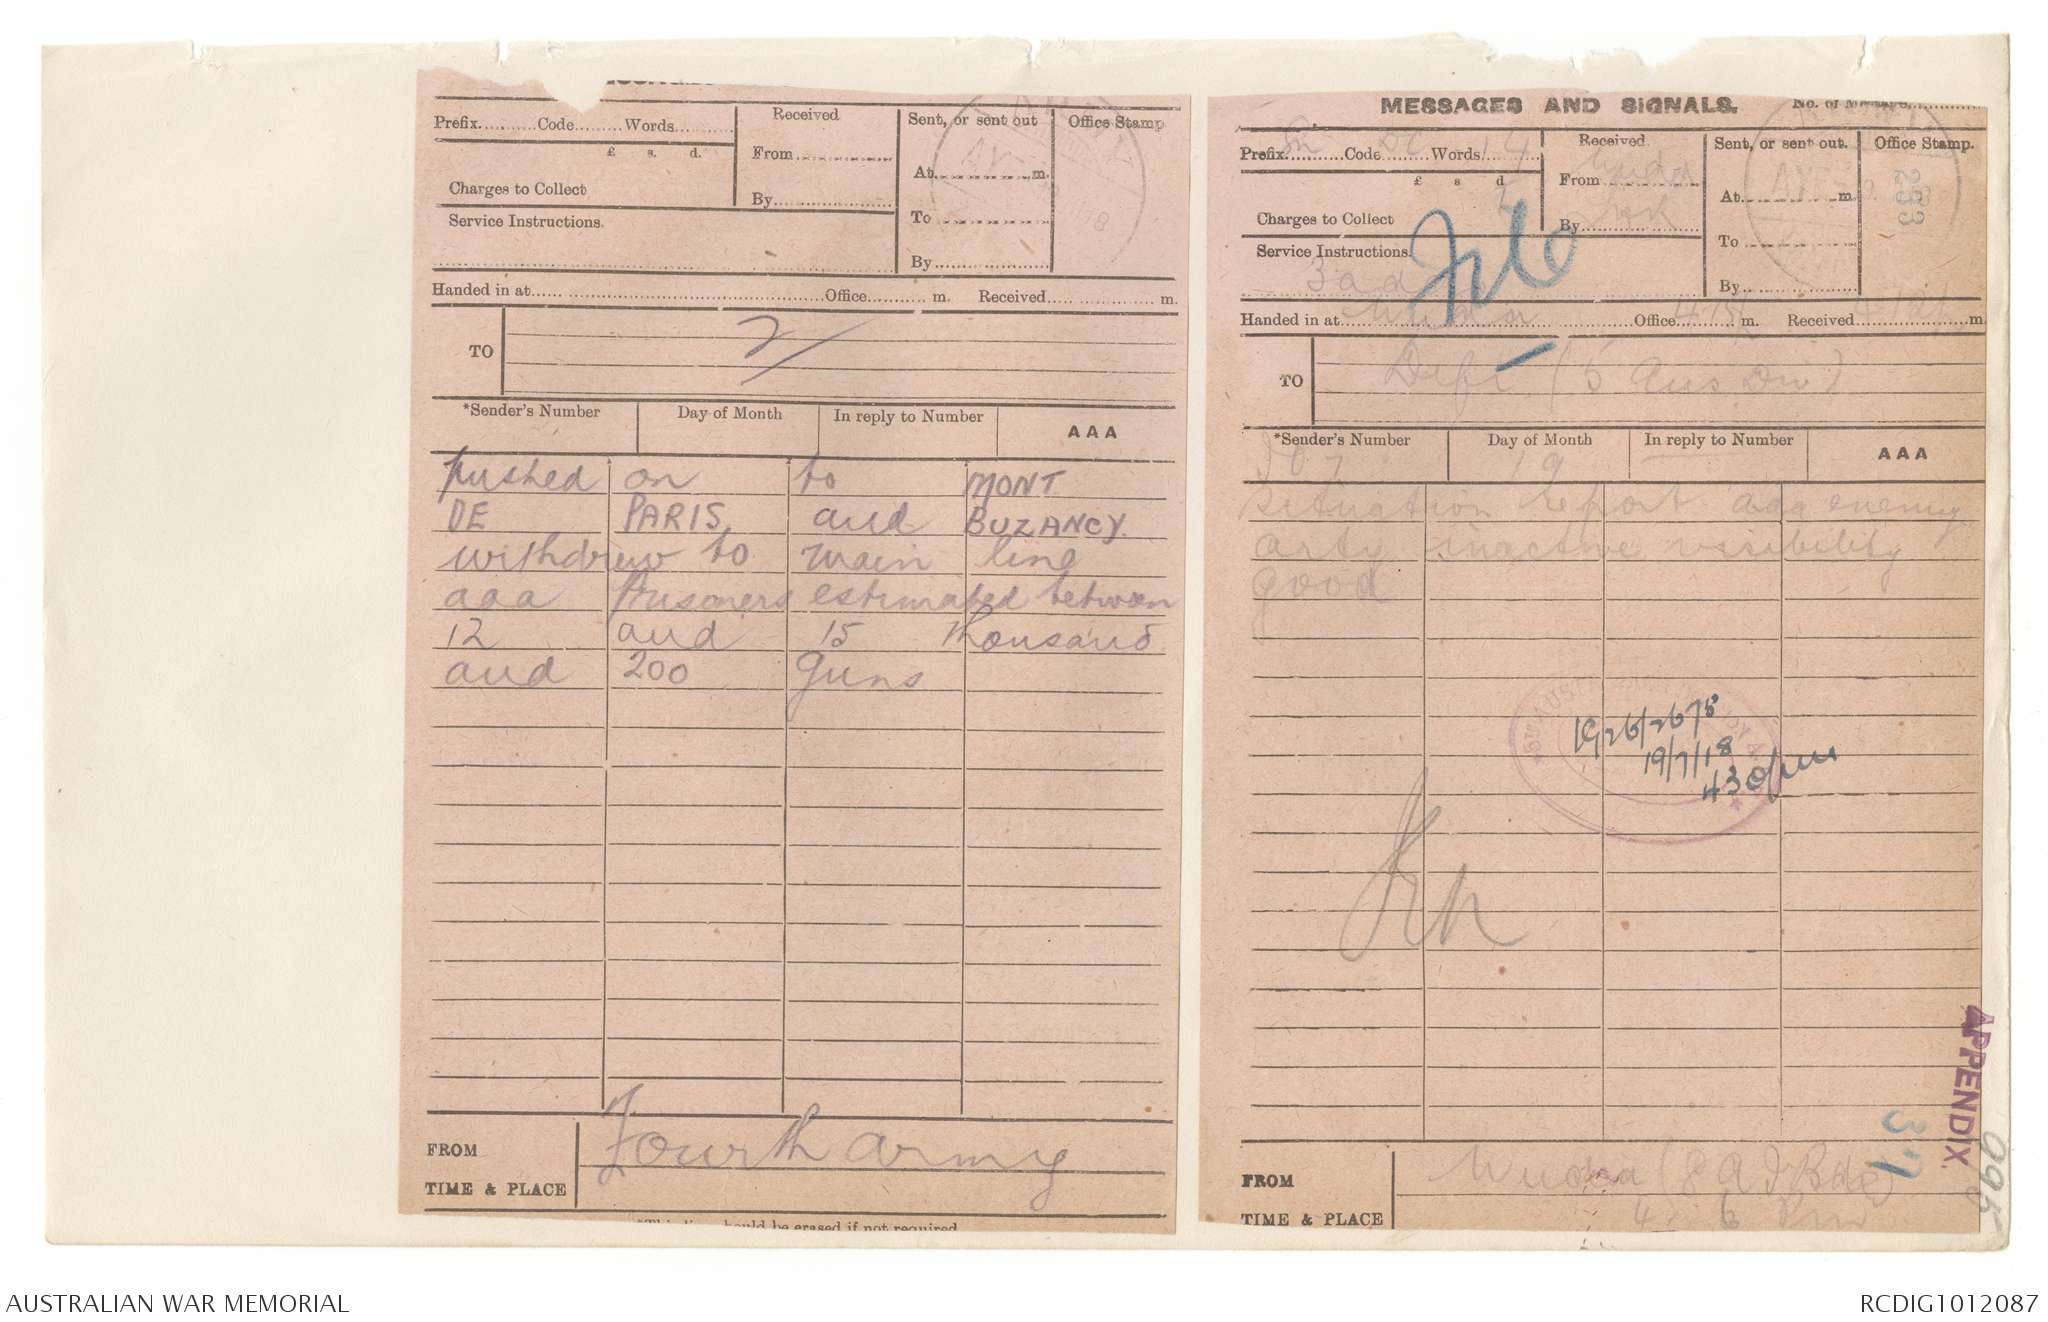 Prefix..........Code........Words..........
£ s. d.
Charges to Collect
Service Instructions.
Received
From
By
Sent, or sent out
At m.
To
By
Office Stamp
Handed in at Office m. Received m.
TO
2/
*Sender's Number Day of Month In reply to Number AAA
pushed on to MONT
DE PARIS and BUZANCY.
withdrew to main line
aaa Prisoners estimated between
12 and 15 thousand
and 200 guns
FROM
Fourth Army
TIME & PLACE
MESSAGES AND SIGNALS.
Prefix Code Words 14
£ s d
Charges to Collect
Service Instructions.
Received
From
By
Sent, or sent out.
At m
To
By
Office Stamp.
File
Handed in at Office m. Received m
TO
(5 Aus Div)
*Sender's Number Day of Month In reply to Number AAA
19
Situation report aaa enemy
arty inactive visibility
good
19/7/18
430pm
APPENDIX.
37
FROM
(8 A I Bde)
TIME & PLACE
AUSTRALIAN WAR MEMORIAL
RCDIG1012087